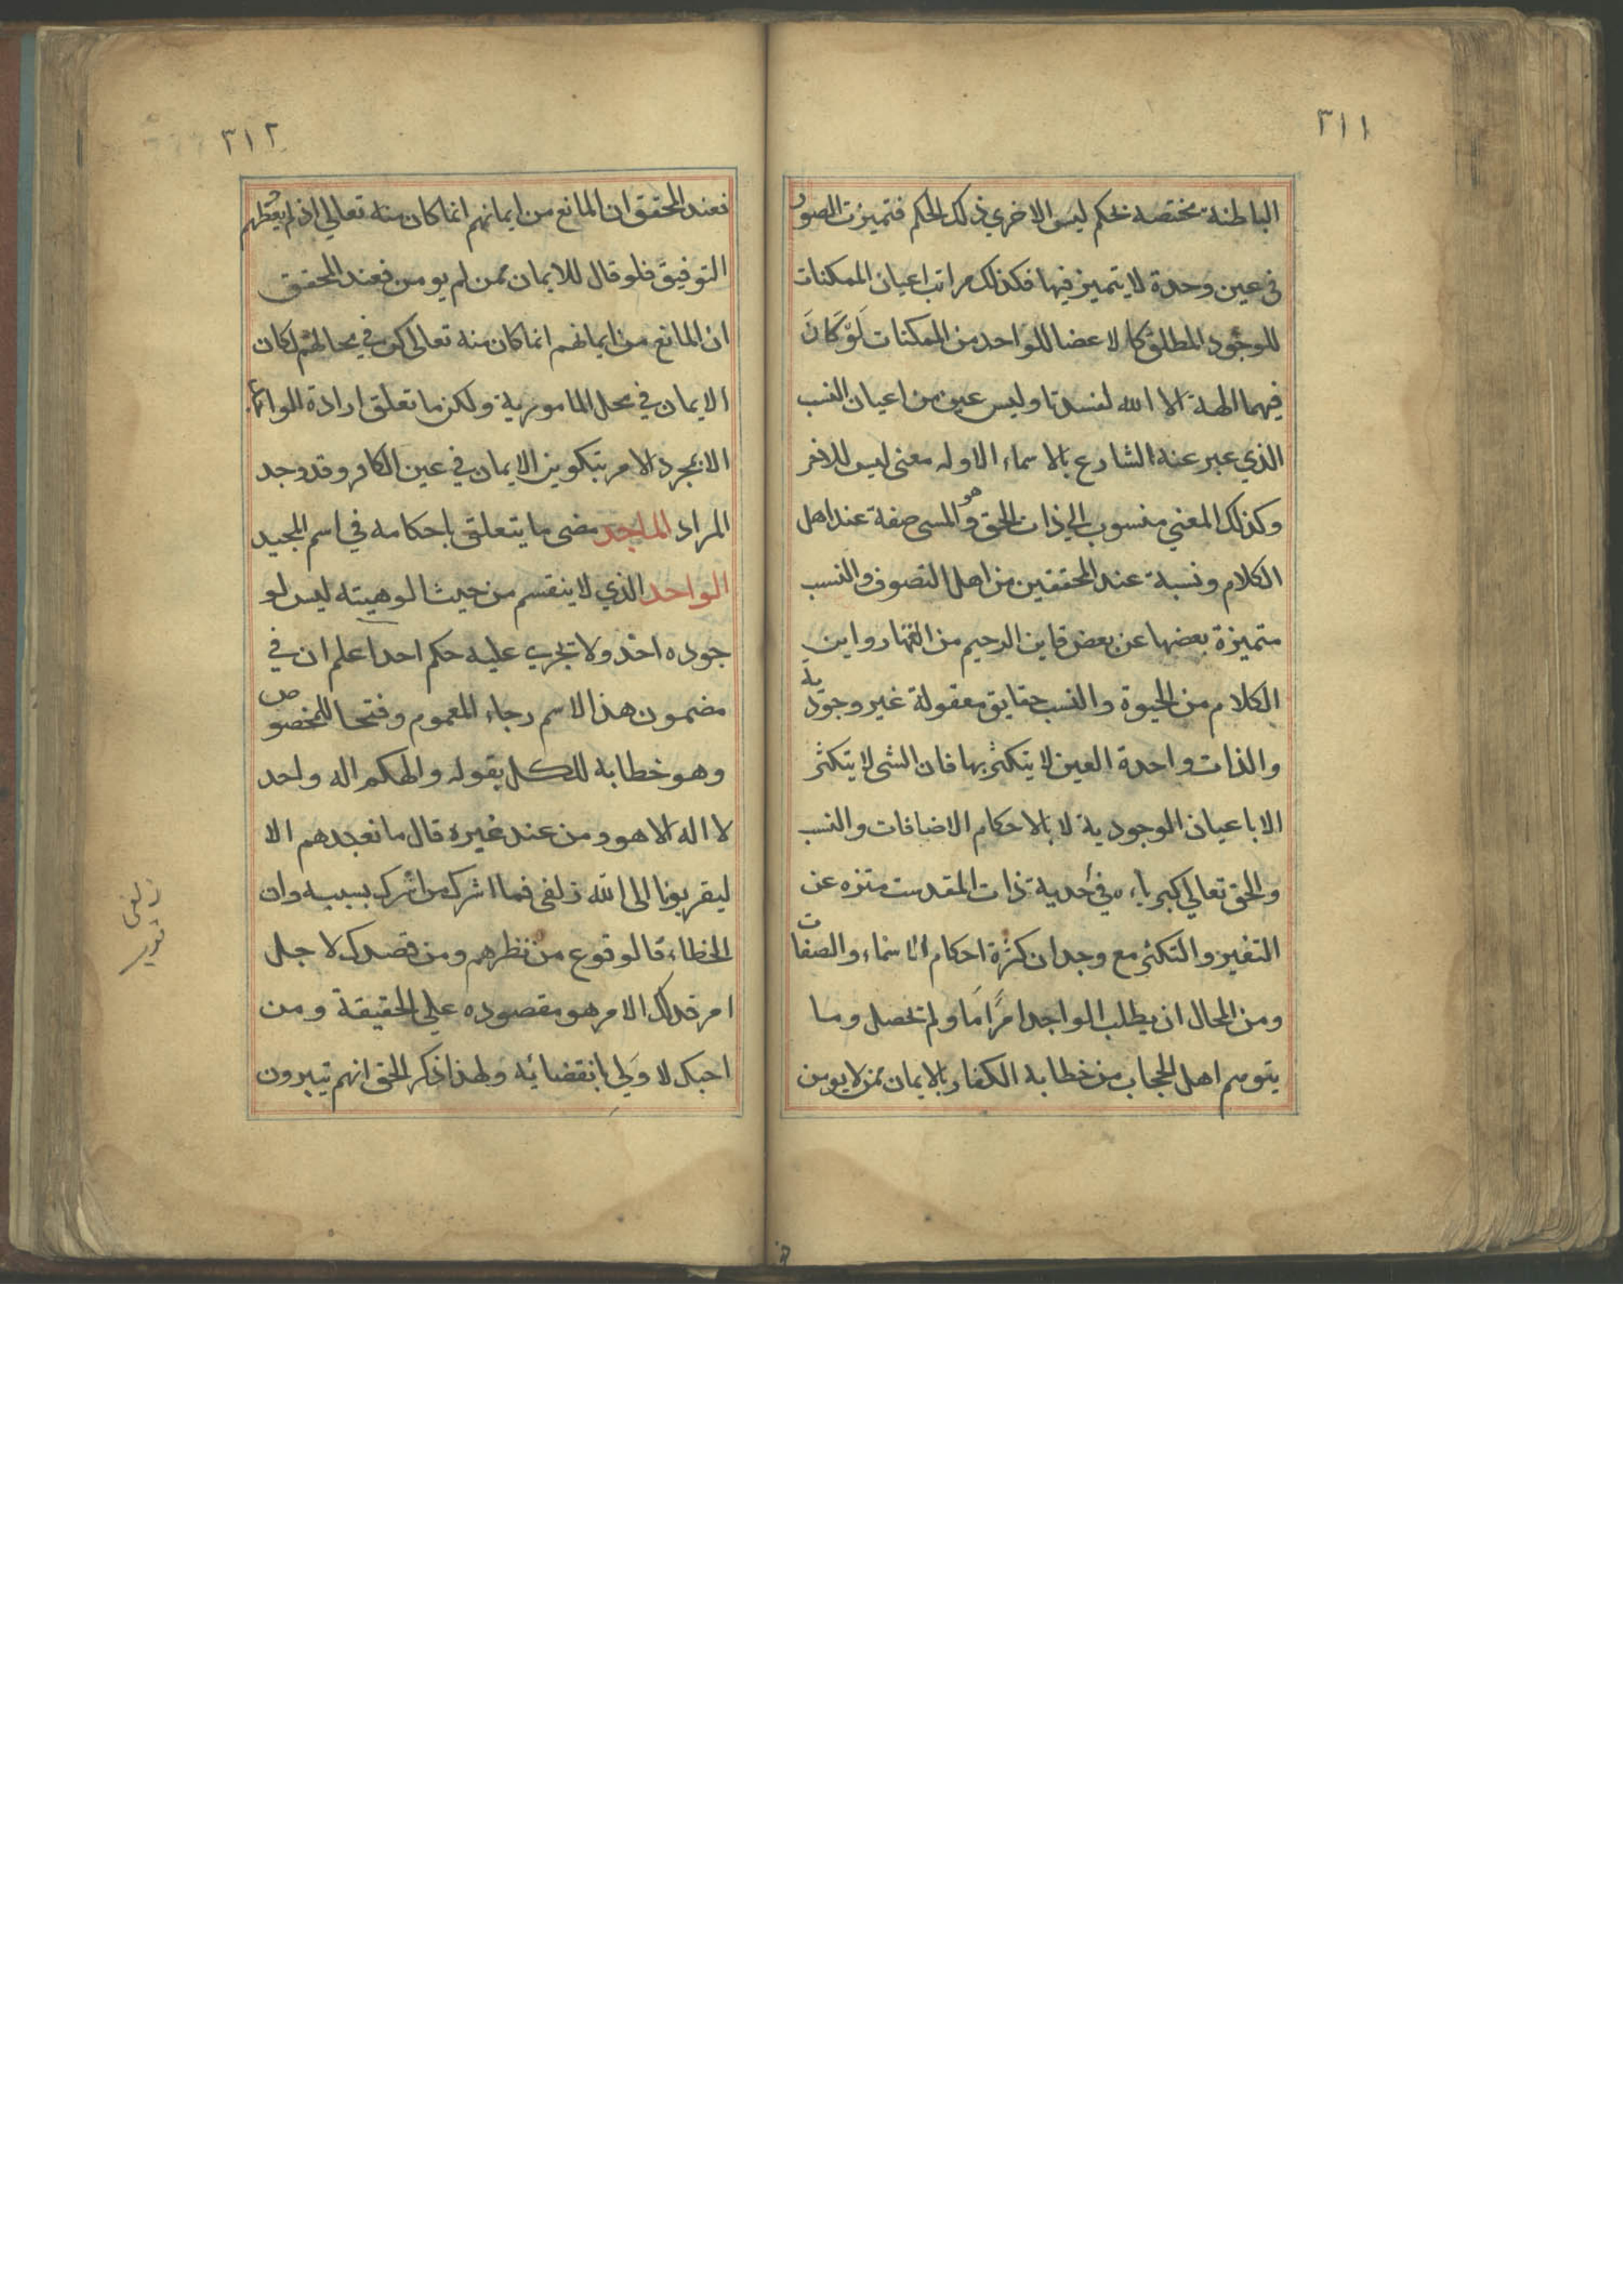 ٣١١
الباطنة مختصه بحكم ليس الاخري ذلك الحكم فتميزت الصور
في عين وحدة لا يتميز فيها فكذلك مراتب اعيان الممكنات
للوجود المطلق كالاعضا للواحد من الممكنات لَوْ كَانَ
فيهما الهة الا الله لفسدتا وليس عين من اعيان النسب
الذي عبر عنه الشارع بالاسماء الا وله معنى ليس للاخر
وكذلك المعني منسوب الي ذات الحق وهو المسمى صفة عند اهل
الكلام ونسبة عند المحققين من اهل التصوف والنسب
متميزة بعضها عن بعض فاين الرحيم من القهار واين
الكلام من الحيوة والنسب حقايق معقولة غير وجودية
والذات واحدة العين لا يتكثر بها فان الشى لا يتكثر
الا باعيان الموجودية لا بالاحكام الاضافات والنسب
والحق تعالي كبرياءه في أحدية ذات المقدست منزه عن
التغير والتكثر مع وجدان كثرة احكام اسماء والصفات
ومن المحال ان يطلب الواجد امرًا مَا ولم تحصل وما
يتوسم اهل الحجاب من خطابه الكفار بالايمان ممن لا يومن
٣١٢
فعند المحقق ان المانع من ايمانهم انما كان منه تعالي اذ لم يعطهم
التوفيق فلو قال للايمان ممن لم يومن فعند المحقق
ان المانع من ايمانهم انما كان منه تعالى كن في محالهم لكان
الايمان في محل المامورية ولكن ما تعلق ارادة
الا بمجرد الامر بتكوين الايمان في عين الكافر وقد وجد
المراد الماجد مضى ما يتعلق باحكامه في اسم المجيد
الواحد الذي لا ينقسم من حيث الوهيته ليس لو
جوده اخذ ولا تجري عليه حكم احد اعلم ان في
مضمون هذا الاسم رجاء للعموم وفتحا للمخصوص
وهو خطابه للكل بقوله والهكم اله واحد
لا اله الا هو ومن عند غيره قال ما نعبدهم الا
ليقربونا الى الله زلفى فما اشرك من اشرك بسببه وان
الخطاء قا لوقوع من نظرهم ومن قصدك لاجل
امر فذلك الامر هو مقصوده علي الحقيقة ومن
احبك لا وَلي بانقضائه ولهذا ذكر الحق انهم تيبرون
زلفى